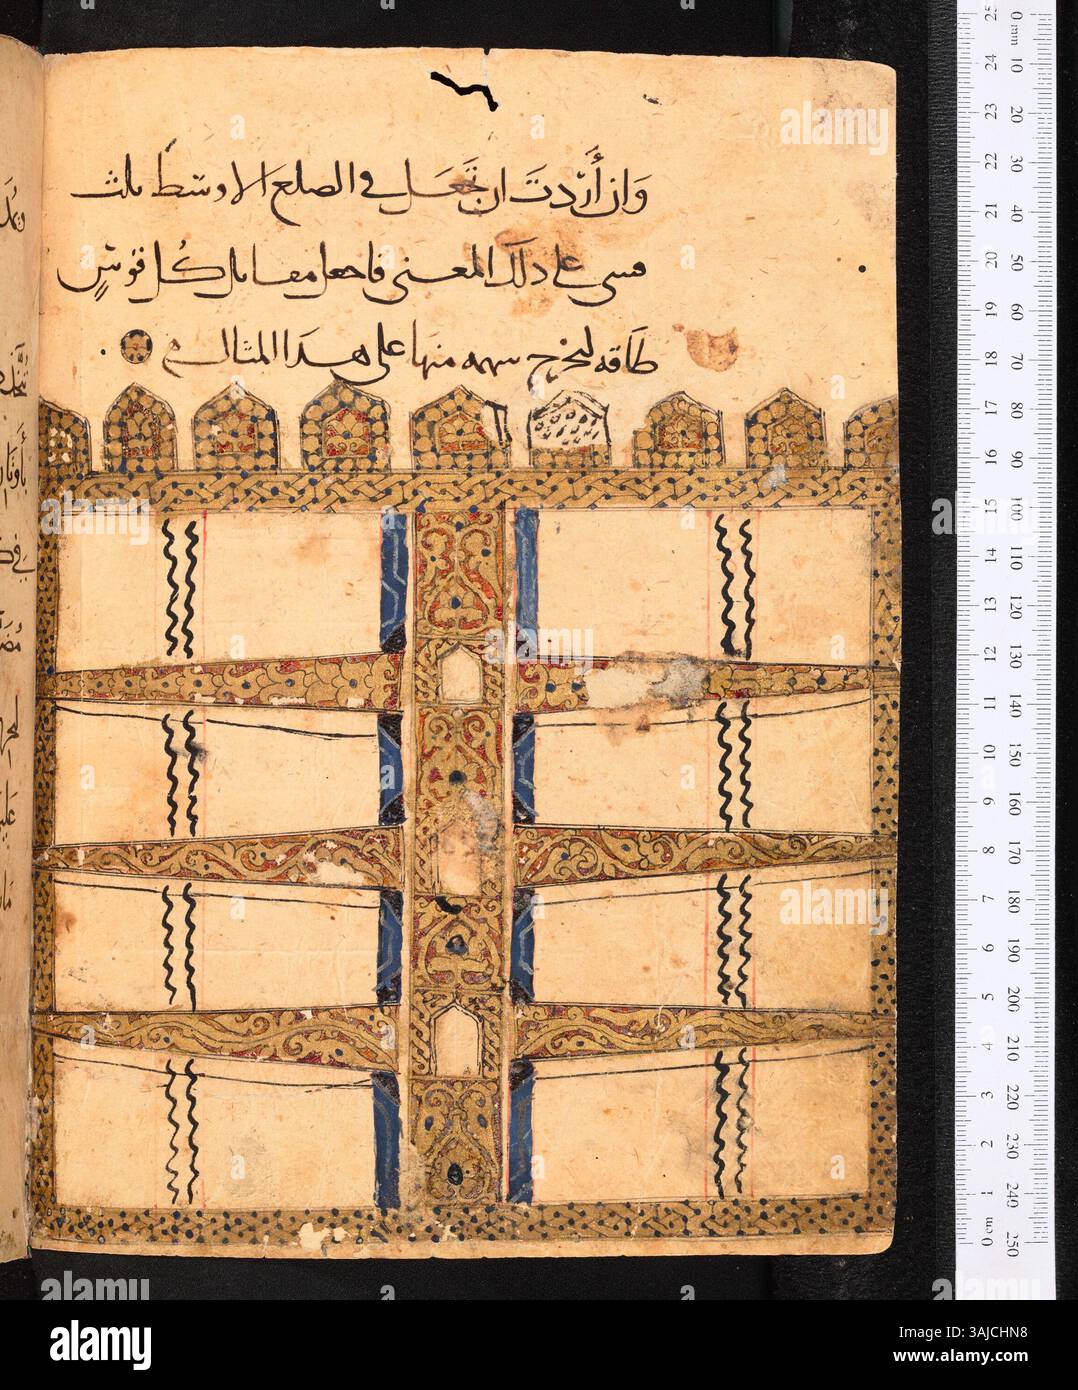 وَان أَرَدتَ ان تجعَل في الضلع الاوسَط ثلث
قسي على ذلك المعنى فاجعل مقابل كُل قوسٍ
طاقه ليخرج سهمه منها على هذا المثال
25
24
23
22
21
20
19
18
17
16
15
14
13
12
11
10
9
8
7
6
5
4
3
2
1
0 cm
0 mm
10
20
30
40
50
60
70
80
90
100
110
120
130
140
150
160
170
180
190
200
210
220
230
240
250
alamy
Image ID: 3AJCHN8
www.alamy.com